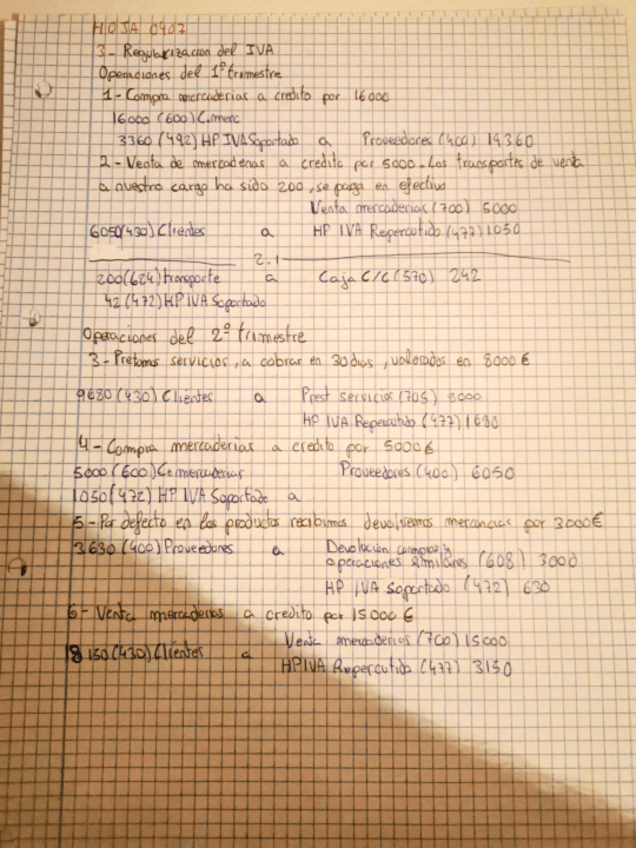 HOJA 0407
3- Regularizacion del IVA
Operaciones del 1º trimestre
1- Compra mercaderias a credito por 16000
16000 (600) C.merc
3360 (492) HP IVA Soportado a Proveedores (400) 19360
2- Venta de mercaderias a credito por 5000. Los transportes de venta
a nuestro cargo ha sido 200, se paga en efectivo
Venta mercaderias (700) 5000
6050 (430) Clientes a HP IVA Repercutido (477) 1050
2.1
200 (624) transporte a Caja C/C (570) 242
42 (472) HP IVA Soportado
Operaciones del 2º trimestre
3- Pretamos servicios, a cobrar en 30 dias, valorados en 8000 €
9680 (430) Clientes a Prest servicios (705) 8000
HP IVA Repercutido (477) 1680
4- Compra mercaderias a credito por 5000 €
5000 (600) Co mercaderias Proveedores (400) 6050
1050 (472) HP IVA Soportado a
5- Por defecto en los productos recibimos devolvemos mercancias por 3000 €
3630 (400) Proveedores a Devolucion compras y
operaciones similares (608) 3000
HP IVA Soportado (472) 630
6- Venta mercaderias a credito por 15000 €
18150 (430) Clientes a Venta mercaderias (700) 15000
HP IVA Repercutido (477) 3150